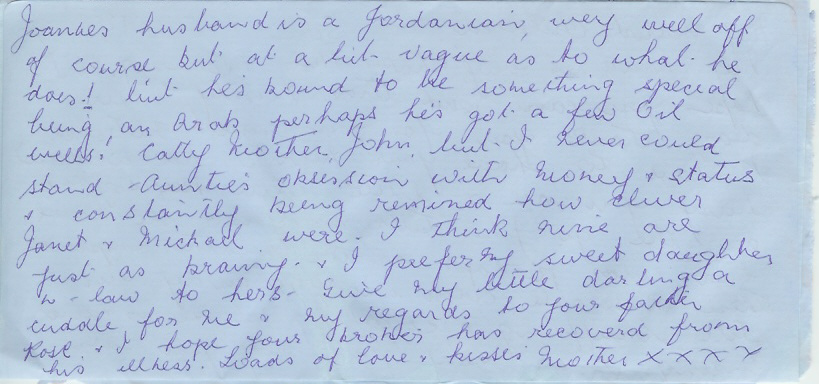 Joannes husband is a Jordanian, very well off
of course but at a bit vague as to what he
does! but he's bound to be something special
being an Arab perhaps he's got a few Oil
wells! Catty Mother, John, but I never could
stand Auntie's obsession with money & status
& constantly being remined how clever
Janet & Michael were. I think mine are
just as brainy. & I prefer my sweet daughter
in-law to hers- Give my little darling a
cuddle for me & my regards to your father
Rose. & I hope your brother has recoverd from
his illness. Loads of love & kisses Mother X X X X